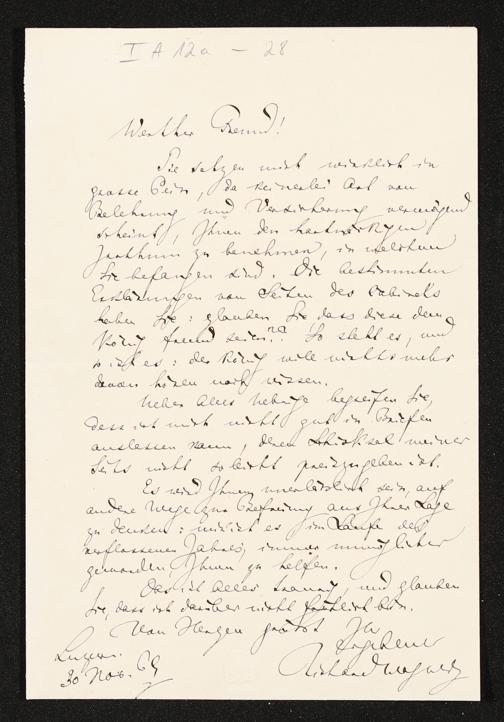 I A 12a - 28
Werther Freund!
Sie setzen mich wirklich in
grosse Pein, da keinerlei Art von
Belehrung und Versicherung vermögend
scheint, Ihnen den hartnäckigen
Irrthum zu benehmen, in welchem
Sie befangen sind. Die bestimmten
Erklärungen von Seiten des Cabinets
haben Sie: glauben Sie dass diese dem
König fremd seien?? So steht es, und
so ist es: der König will nichts mehr
davon hören noch wissen.
Ueber alles Uebrige begreifen Sie,
dass ich mich nicht gut in Briefen
auslassen kann, deren Schicksal meiner
Seits nicht so leicht preiszugeben ist.
Es wird Ihnen unerlässlich sein, auf
andere Wege zur Befreiung aus Ihrer Lage
zu denken: mir ist es im Laufe des
verflossenen Jahres immer unmöglicher
geworden, Ihnen zu helfen.
Das ist Alles traurig, und glauben
Sie, dass ich darüber nicht fröhlich bin.
Von Herzen grüsst Ihr
ergebener
Luzern.
30 Nov. 69
Richard Wagner